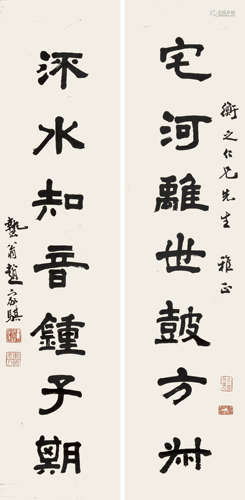 衡之仁兄先生 雅正
宅河離世鼓方叔
流水知音鍾子期
蟄翁趙